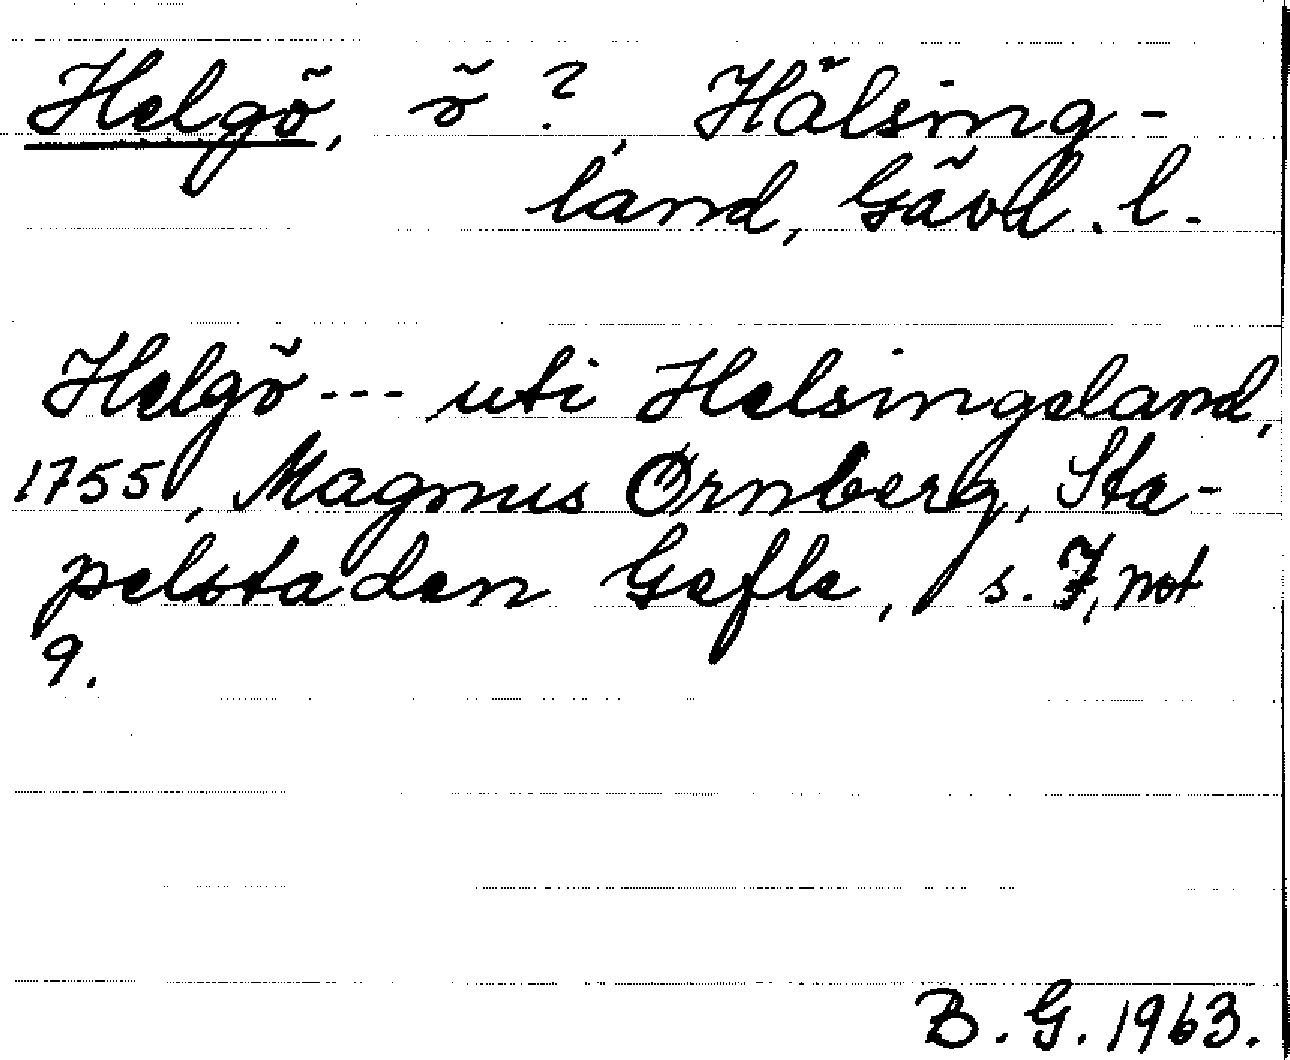 Helgö, ö ?, Hälsing-
land, Gävl. l.
Helgö --- uti Helsingeland,
1755, Magnus Örnberg, Sta-
pelstaden Gefle, s. 7, not
9.
B. G. 1963.